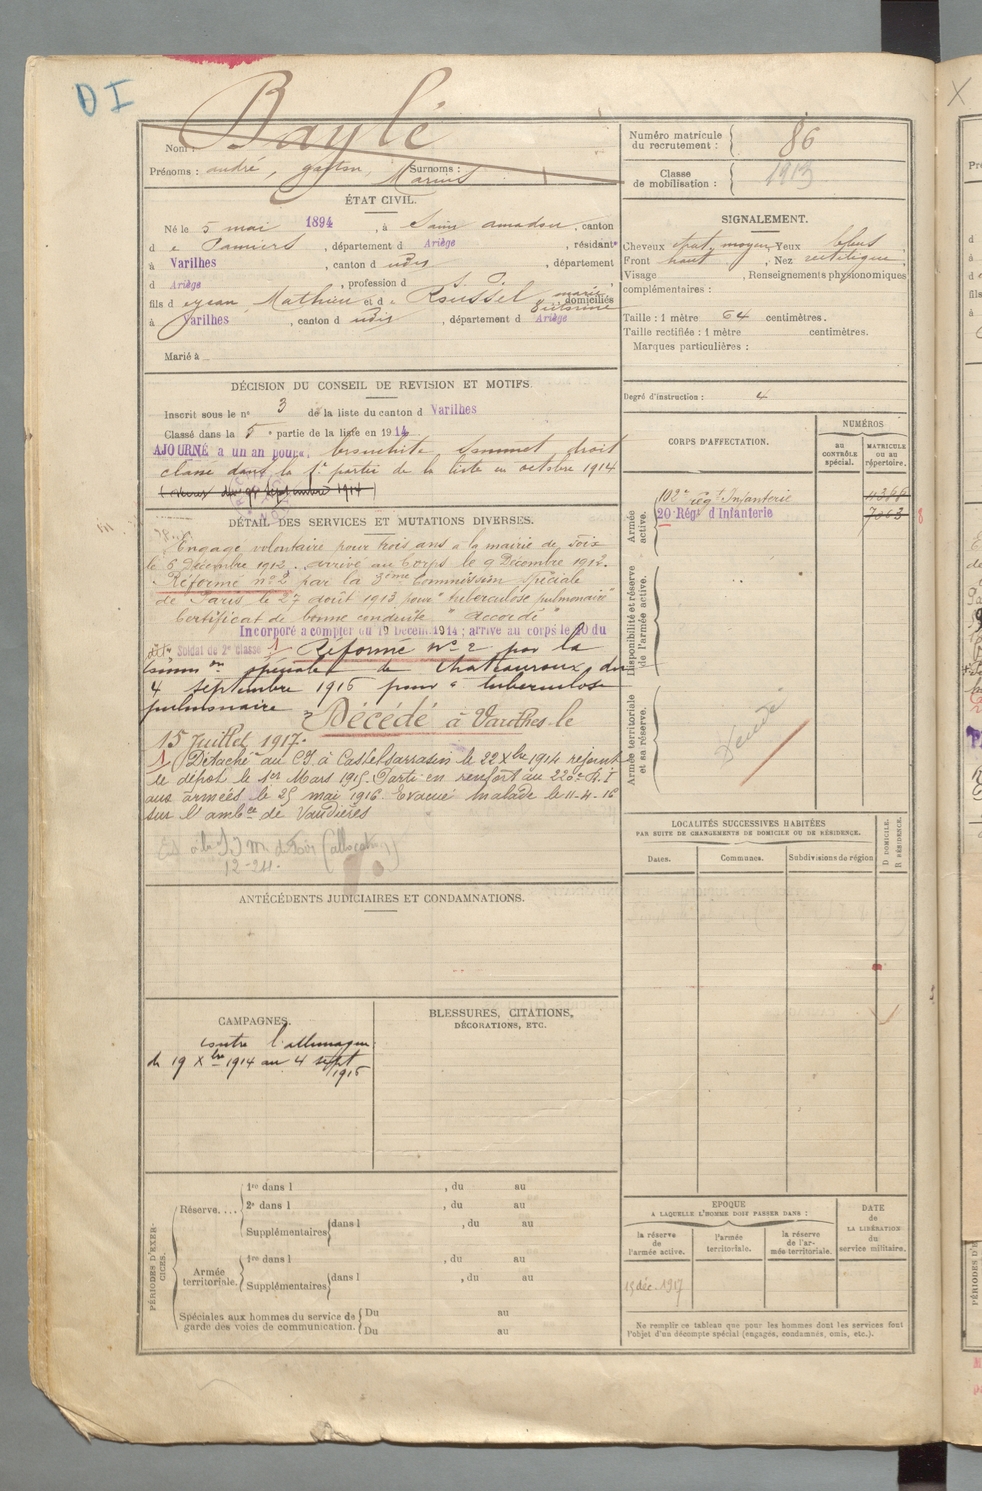 D I
Baylé
Nom :
Prénoms : andré, gaston, Surnoms :
Marius
Numéro matricule
du recrutement : 86
Classe
de mobilisation : 1913
ÉTAT CIVIL.
Né le 5 mai 1894, à Saint amadou, canton
d e Pamiers, département d Ariège, résidant
à Varilhes, canton d udit, département
d Ariège, profession d S. P.
fils d e Jean Mathieu et d e Roussel marie Victorine, domiciliés
à Varilhes, canton d udit, département d Ariège
Marié à
SIGNALEMENT.
Cheveux chat. moyen Yeux bleus
Front haut, Nez rectiligne
Visage , Renseignements physionomiques
complémentaires :
Taille : 1 mètre 64 centimètres.
Taille rectifiée : 1 mètre centimètres.
Marques particulières :
Degré d'instruction : 4
DÉCISION DU CONSEIL DE REVISION ET MOTIFS.
Inscrit sous le n° 3 de la liste du canton d Varilhes
Classé dans la 5e partie de la liste en 1914
AJOURNÉ a un an pour bronchite sommet droit
classé dans la 1e partie de la liste en octobre 1914
septembre 1914
DÉTAIL DES SERVICES ET MUTATIONS DIVERSES.
Engagé volontaire pour trois ans à la mairie de Foix
le 6 Décembre 1912. arrivé au Corps le 9 Décembre 1912.
Réformé n° 2 par la 3ème Commission spéciale
de Paris le 27 août 1913 pour "tuberculose pulmonaire"
Certificat de bonne conduite "accordé"
Incorporé à compter du 19 Décem. 1914; arrivé au corps le 20 du
dit Soldat de 2e classe 1) Réformé n° 2 par la
spéciale de Chateauroux du
4 septembre 1916 pour tuberculose
pulmonaire Décédé à Varilhes le
15 Juillet 1917.
1) Détaché au CI à Castelsarrasin le 22 Xbre 1914 rejoint
le dépôt le 1er Mars 1915. Parti en renfort au 220e R.I
aux armées le 25 mai 1916. Evacué malade le 11-4-16
sur l'ambce de Vaudières
(allocation)
12-24.
CORPS D'AFFECTATION.
NUMÉROS
AU CONTRÔLE spécial.
MATRICULE ou au répertoire.
Armée active.
102e rég.t Infanterie 4366
20 Rég.t d'Infanterie 7063 8
Disponibilité et réserve de l'armée active.
Armée territoriale et sa réserve.
Décédé
LOCALITÉS SUCCESSIVES HABITÉES
PAR SUITE DE CHANGEMENTS DE DOMICILE OU DE RÉSIDENCE.
Dates.
Communes.
Subdivisions de région
D DOMICILE.
R RÉSIDENCE.
ANTÉCÉDENTS JUDICIAIRES ET CONDAMNATIONS.
CAMPAGNES.
contre l'allemagne
du 19 Xbre 1914 au 4 sept
1916
BLESSURES, CITATIONS,
DÉCORATIONS, ETC.
PÉRIODES D'EXERCICES.
Réserve....
1re dans l , du au
2e dans l , du au
Supplémentaires dans l , du au
Armée territoriale.
1re dans l , du au
Supplémentaires dans l , du au
Spéciales aux hommes du service de
garde des voies de communication.
Du au
Du au
EPOQUE
A LAQUELLE L'HOMME DOIT PASSER DANS :
la réserve de l'armée active.
l'armée territoriale.
la réserve de l'armée territoriale.
DATE de LA LIBÉRATION du service militaire.
15 déc. 1917
Ne remplir ce tableau que pour les hommes dont les services font
l'objet d'un décompte spécial (engagés, condamnés, omis, etc.).